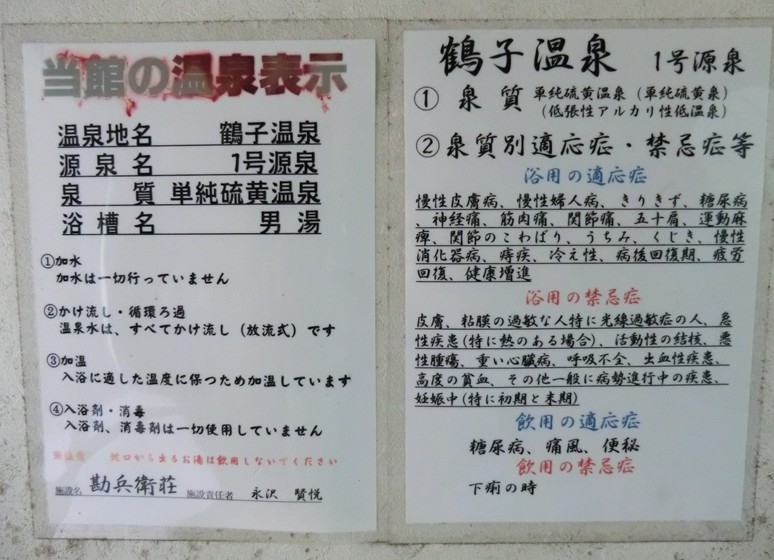 当館の温泉表示
温泉地名 鶴子温泉
源泉名 1号源泉
泉質 単純硫黄温泉
浴槽名 男湯
①加水
加水は一切行っていません
②かけ流し・循環ろ過
温泉水は、すべてかけ流し（放流式）です
③加温
入浴に適した温度に保つため加温しています
④入浴剤・消毒
入浴剤、消毒剤は一切使用していません
蛇口から出るお湯は飲用しないでください
施設名 勘兵衛荘 施設責任者 永沢 賢悦
鶴子温泉 1号源泉
① 泉質 単純硫黄温泉（単純硫黄泉）
（低張性アルカリ性低温泉）
②泉質別適応症・禁忌症等
浴用の適応症
慢性皮膚病、慢性婦人病、きりきず、糖尿病
、神経痛、筋肉痛、関節痛、五十肩、運動麻
痺、関節のこわばり、うちみ、くじき、慢性
消化器病、痔疾、冷え性、病後回復期、疲労
回復、健康増進
浴用の禁忌症
皮膚、粘膜の過敏な人特に光線過敏症の人、急
性疾患(特に熱のある場合)、活動性の結核、悪
性腫瘍、重い心臓病、呼吸不全、出血性疾患、
高度の貧血、その他一般に病勢進行中の疾患、
妊娠中(特に初期と末期)
飲用の適応症
糖尿病、痛風、便秘
飲用の禁忌症
下痢の時